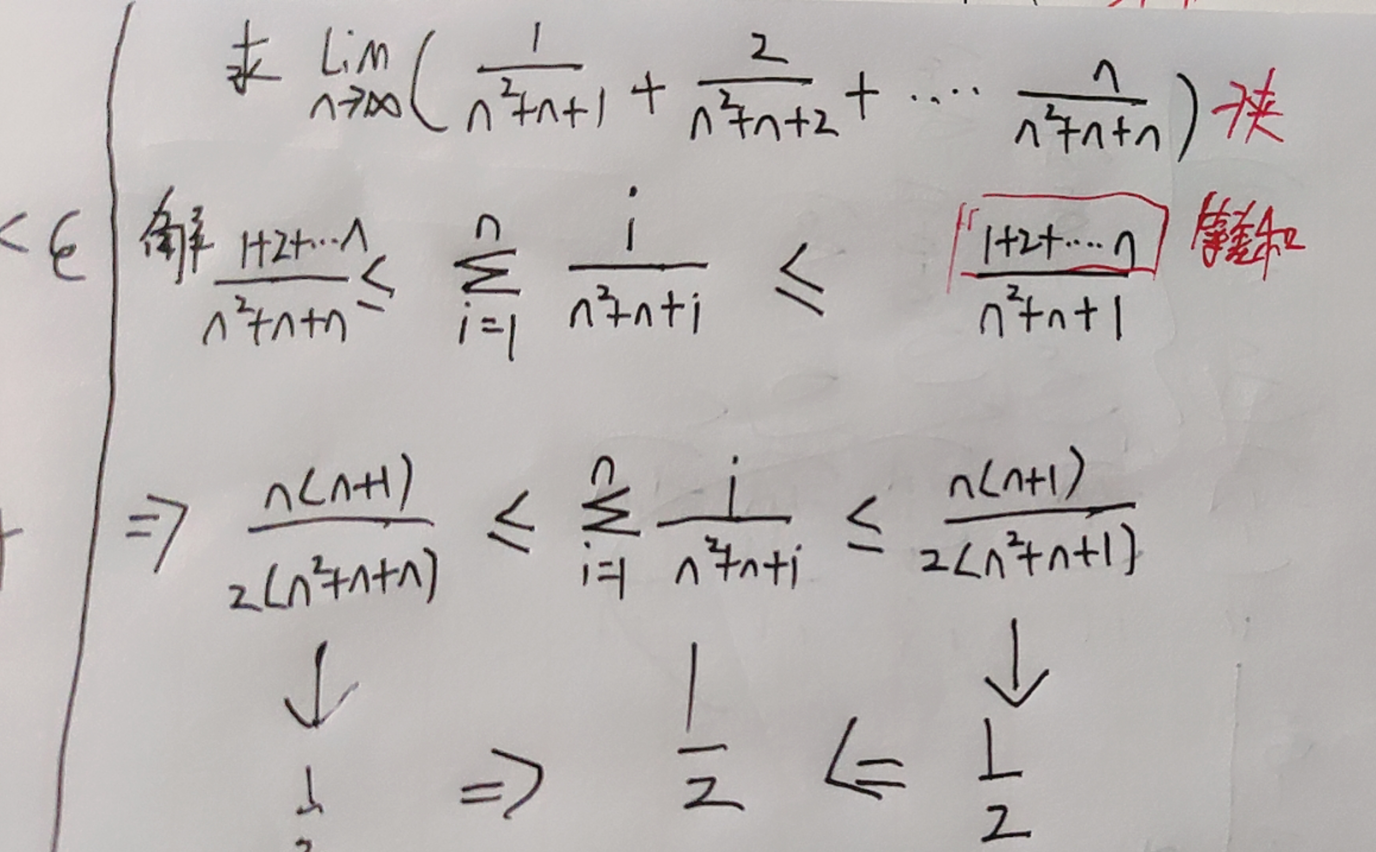 求 Lim n→∞ ( 1/(n²+n+1) + 2/(n²+n+2) + ···· n/(n²+n+n) ) 夹
<ϵ 解 (1+2+···n)/(n²+n+n) ≤ Σ_{i=1}^{n} i/(n²+n+i) ≤ (1+2+····n)/(n²+n+1) 和
⇒ n(n+1)/2(n²+n+n) ≤ Σ_{i=1}^{n} i/(n²+n+i) ≤ n(n+1)/2(n²+n+1)
↓ ↓
1/2 ⇒ 1/2 ⇐ 1/2